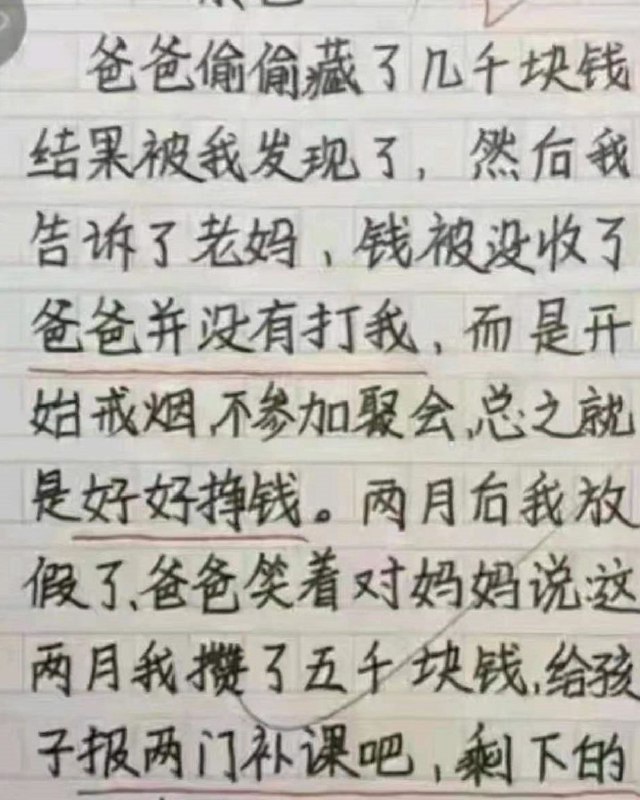 爸爸偷偷藏了几千块钱
结果被我发现了，然后我
告诉了老妈、钱被没收了
爸爸并没有打我，而是开
始戒烟,不参加聚会,总之就
是好好挣钱。两月后我放
假了、爸爸笑着对妈妈说:这
两月我攒了五千块钱,给孩
子报两门补课吧，剩下的